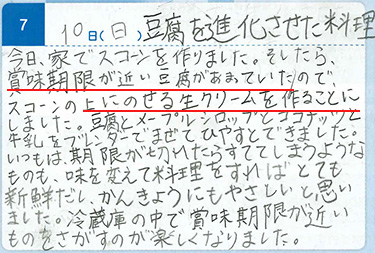 7 10日(日) 豆腐を進化させた料理
今日、家でスコーンを作りました。そしたら、
賞味期限が近い豆腐があまっていたので、
スコーンの上にのせる生クリームを作ることに
しました。豆腐とメープルシロップとココナッツと
牛乳をブレンダーでまぜてひやすとできました。
いつもは、期限が切れたらすててしまうような
ものも、味を変えて料理をすればとても
新鮮だし、かんきょうにもやさしいと思い
ました。冷蔵庫の中で賞味期限が近い
ものをさがすのが楽しくなりました。